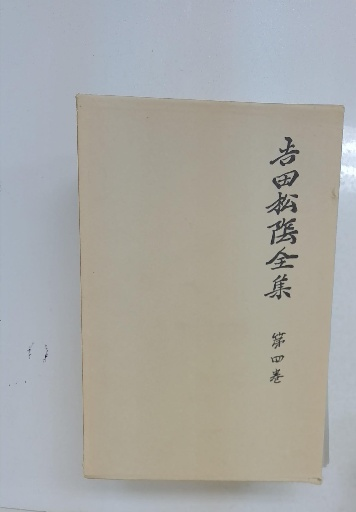 吉田松陰全集
第四巻